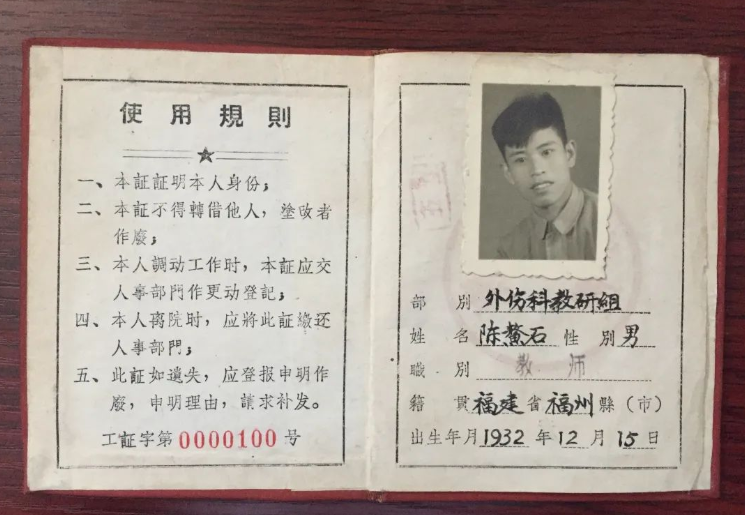 使用規則
一、本証証明本人身份；
二、本証不得轉借他人，塗改者
作廢；
三、本人調动工作时，本証应交
人事部門作更动登記；
四、本人离院时，应將此証繳还
人事部門；
五、此証如遺失，应登报申明作
廢，申明理由，請求补发。
工証字第0000100号
部別 外伤科教研組
姓名 陈鳌石 性別 男
職別 教师
籍貫 福建省福州縣（市）
出生年月1932年12月15日